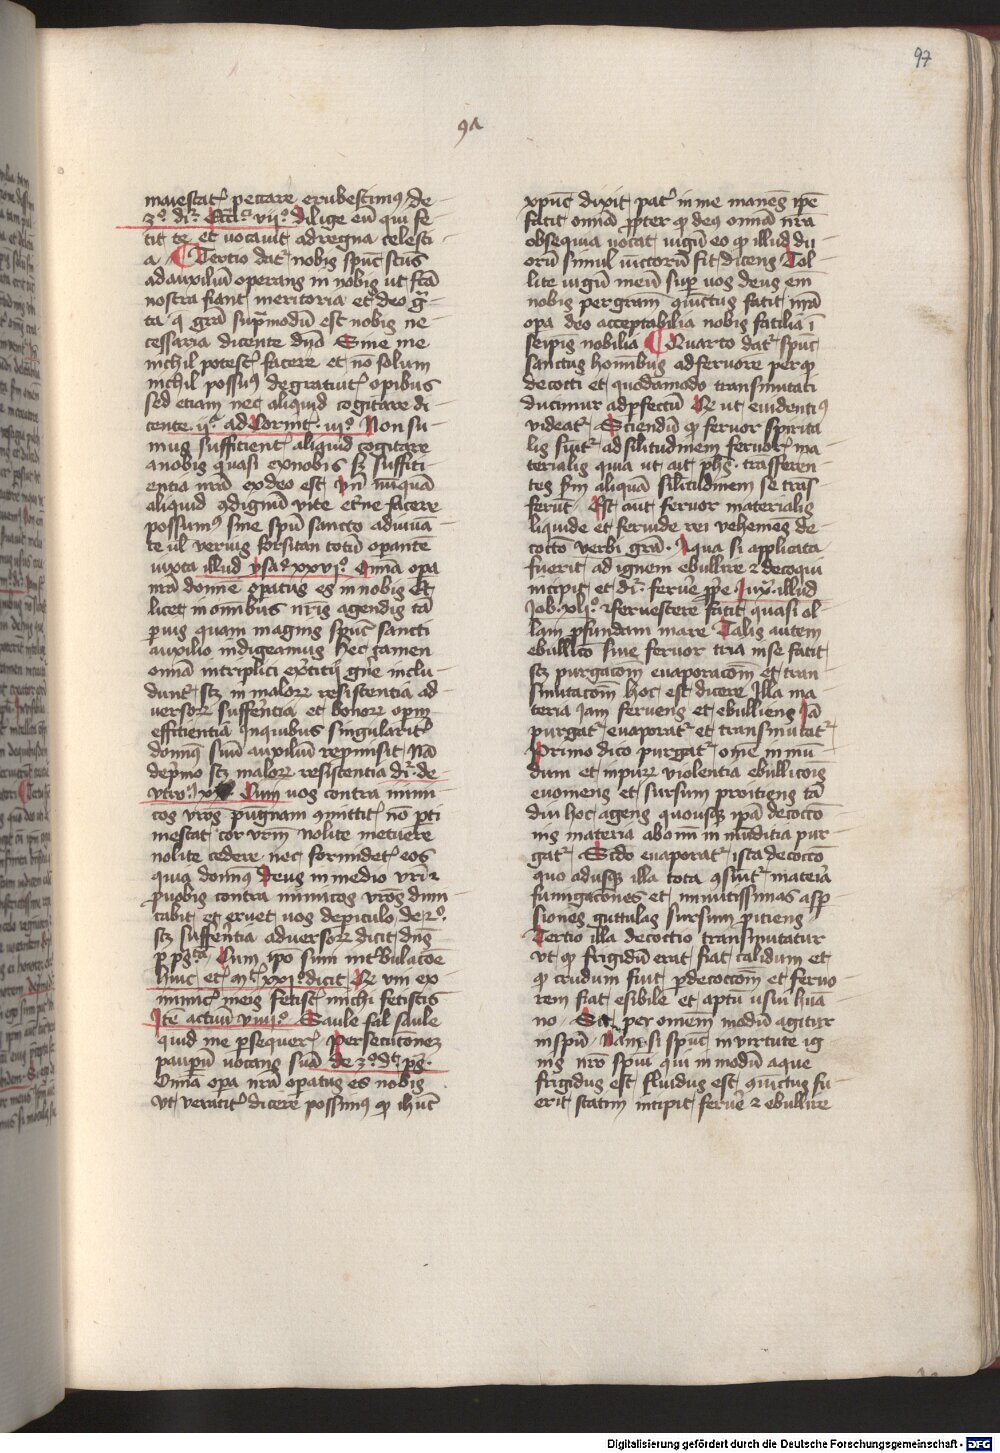 97
91
maiestatꝭ peccare erubescimꝰ de
3º diꝛ Eccꝉi vijº dilige eū qui fe-
cit te et vocauit ad regna celesti-
a ¶ Tertio datꝛ nobis spūs scūs
ad auxiliū operans in nobis ut scā
nostra fiant meritoria et deo gᷓ-
ta q grā supͣmodū est nobis ne-
cessaria dicente dnō Sine me
nichil potestꝭ facere et nō solum
nichil possumꝰ de gratuitꝭ opibus
sed etiam nec aliquid cogitare di-
cente ijª ad Corintꝭ iijº Non su-
mus sufficientꝭ aliquid cogitare
a nobis quasi ex nobis sꝫ suffici-
entia nrā ex deo est vn̄ nūquā
aliquid ꝯdignū vite etͤne facere
possumꝰ sine spū sancto adiuuā-
te ul verius forsitan totū opante
iuxta illud ysaᵉ xxvjº Omīa opa
nrā domīe opatus es in nobis Et
licet in omnibus nris agendis tā
puis quam magnis spūs sancti
auxilio indigeamus hec tamen
omīa in triplici exͤcitij gn̄e inclu-
duntꝛ sꝫ in maloꝝ resistentia ad-
uersoꝝ suffͤrentia et bonoꝝ opm
efficientia In quibus singularitꝭ
domīꝰ suū auxiliū repmisit Nā
de pͥmo sꝫ maloꝝ resistentia diꝛ de-
utroº xx Cum uos contra inimi-
cos vr̄os pugnam ꝯmittitꝭ nō pti-
mescat cor vrm̄ nolite metuere
nolite cedere nec formidetꝭ eos
quia domīꝰ deus in medio vri ꝛ
p uobis contra inimicos vr̄os dimi-
cabit et eruet uos de piculo de 2º
sꝫ suffͤrentia aduersoꝝ dicit dn̄s
p pſᵃ Cum ipo sum in tͥbulacōe
huic etꝭ mᵗ xxjº dicit Ve vni ex
minimꝭ meis fecistꝭ michi fecistis
Itē actuū viiijº Saule sal saule
quid me psequerꝭ Persecucionez
paupū vocans suā de 3º dᵗ pſ
Omīa opa nrā opatus es nobis
vt veracitꝭ dicere possimꝰ ꝙ ihūc
xpūc dixit patꝭ in me manēs ipē
facit omīa ꝓpter ꝙ deus omīa nrā
obsequia vocat iugū eo ꝙ illud du-
orū simul iūctorū sit dicens Tol-
lite iugū meū sup uos deus eīn
nobis per gram̄ ꝯiūctus facit nrā
opa deo acceptabilia nobis facilia ī
seipis nobilia ¶ Quarto datꝛ spūc
sanctus hom̄ibus ad feruorē per quē
decocti et quodamodo transmutati
ducimur ad pfectū Ve ut euidentiꝰ
videatꝛ Sciendū ꝙ feruor spirita-
lis sūitꝛ ad silitudinem feruorꝭ ma-
terialis quia ut ait phs trāsferen-
tes sm̄ aliquā silitudinem se trās-
ferūt Est aut feruor materialis
liquide et feruide rei vehemēs de-
coctio verbi grā Aqua si applicata
fuerit ad ignem ebullire ꝛ decoqui
incipit et diꝛ feruͤe ꝓpe Iuxᵃ illud
Job xljº efferuescere facit quasi ol-
lam pfundam mare Talis autem
ebullico siue feruor tria in se facit
sꝫ purgacōm euaporacōm et tran-
smutacōm hoc est dicere Illa ma-
teria iam feruens et ebulliens Iā
purgatꝛ euaporatꝛ et transmutatꝛ
Primo dico purgatꝛ om̄e immū-
dum et impuꝝ violentia ebullicōis
euomens et sursum proiciens tā
diu hoc agens quousqꝫ ipā decoccō
nis materia ab om̄i inmūditia pur-
gatꝛ Scdo euaporatꝛ ista decoccō
quo adusqꝫ illa tota ꝯsūitꝛ materia
fumigacōnes et minutissimas asp-
siones guttulas sursum ꝓiciens
Tercio illa decoctio transmutatur
vt ꝙ frigidū erat fiat calidum et
ꝙ crudum fuit p decoccōem et feruo-
rem fiat esibile et aptū usui hūa-
no Sic per omēm modū agitur
in spū Nam si spūc in virtute ig-
nis nr̄o spūi qui in modū aque
frigidus est fluidus est ꝯiūctus fu-
erit statim incipit feruͤe ꝛ ebullire
Digitalisierung gefördert durch die Deutsche Forschungsgemeinschaft - DFG